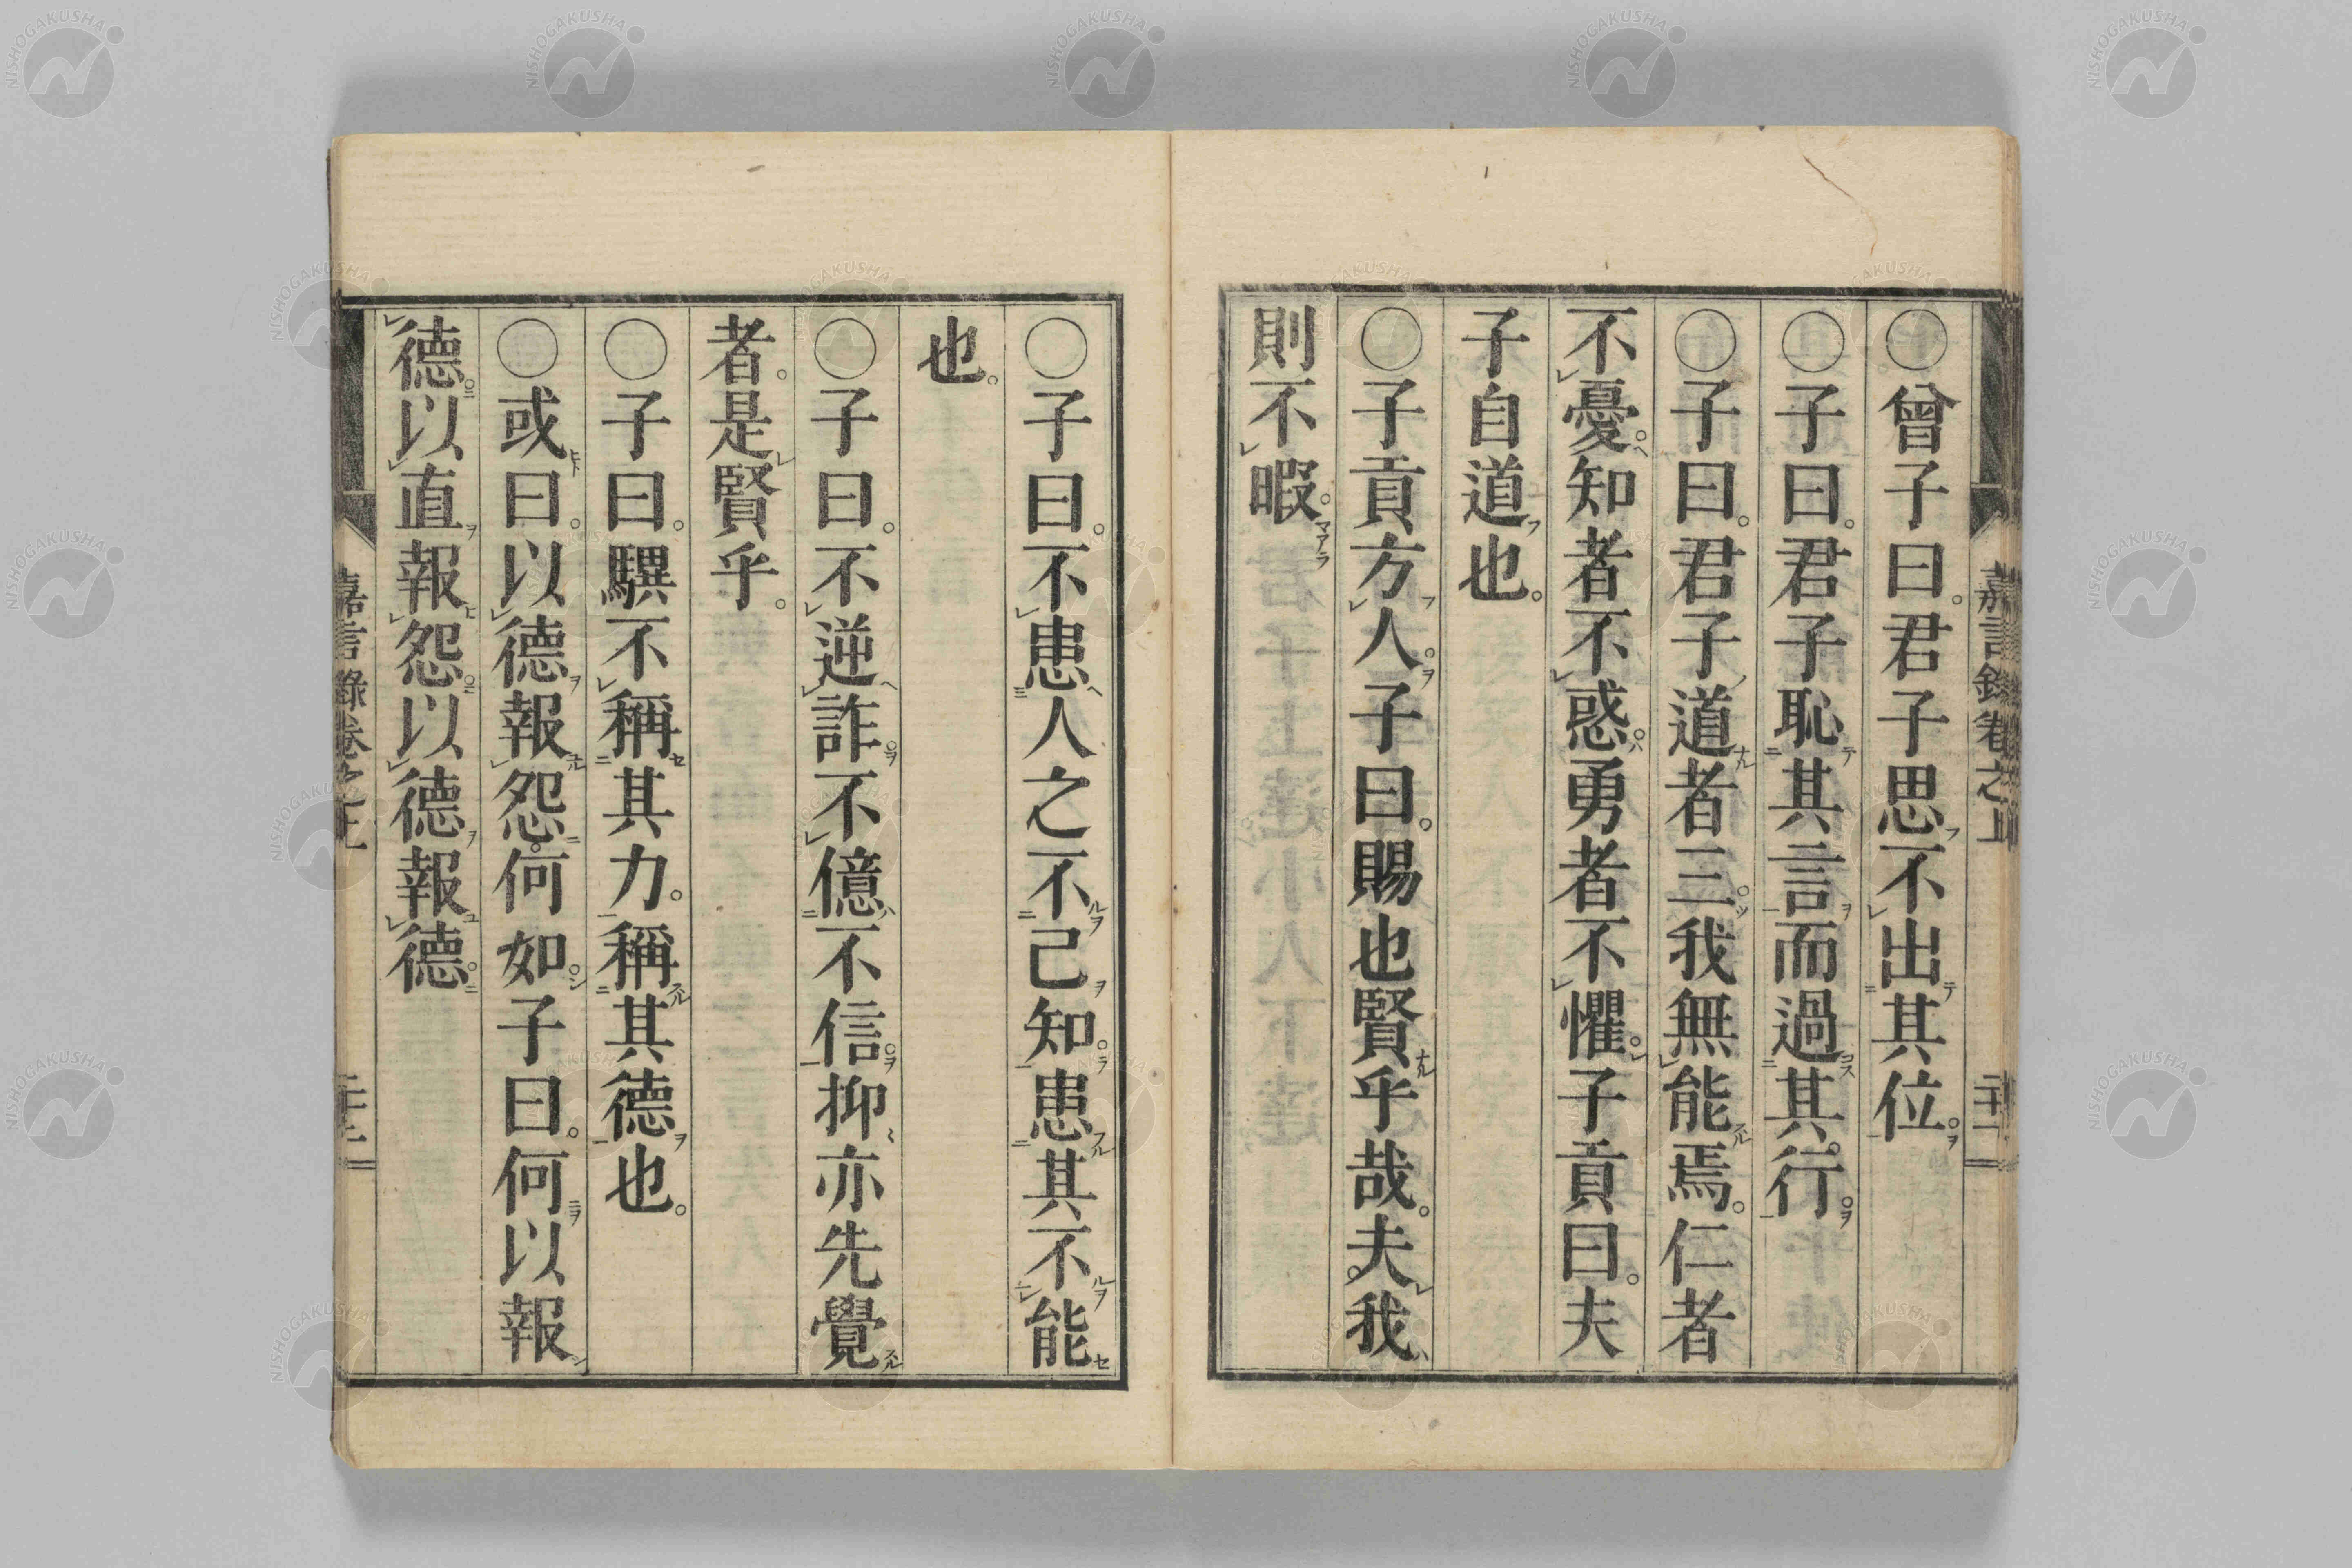 〇曾子曰。君子思不出其位。
〇子曰。君子恥其言而過其行。
〇子曰。君子道者三。我無能焉。仁者
不憂。知者不惑。勇者不懼。子貢曰。夫
子自道也。
〇子貢方人。子曰。賜也賢乎哉。夫。我
則不暇。
〇子曰。不患人之不己知。患其不能
也。
〇子曰。不逆詐。不億不信。抑亦先覺
者。是賢乎。
〇子曰。驥不稱其力。稱其德也。
〇或曰。以德報怨。何如。子曰。何以報
德。以直報怨。以德報德。
嘉言錄卷之上
嘉言錄卷之上
NISHOGAKUSHA